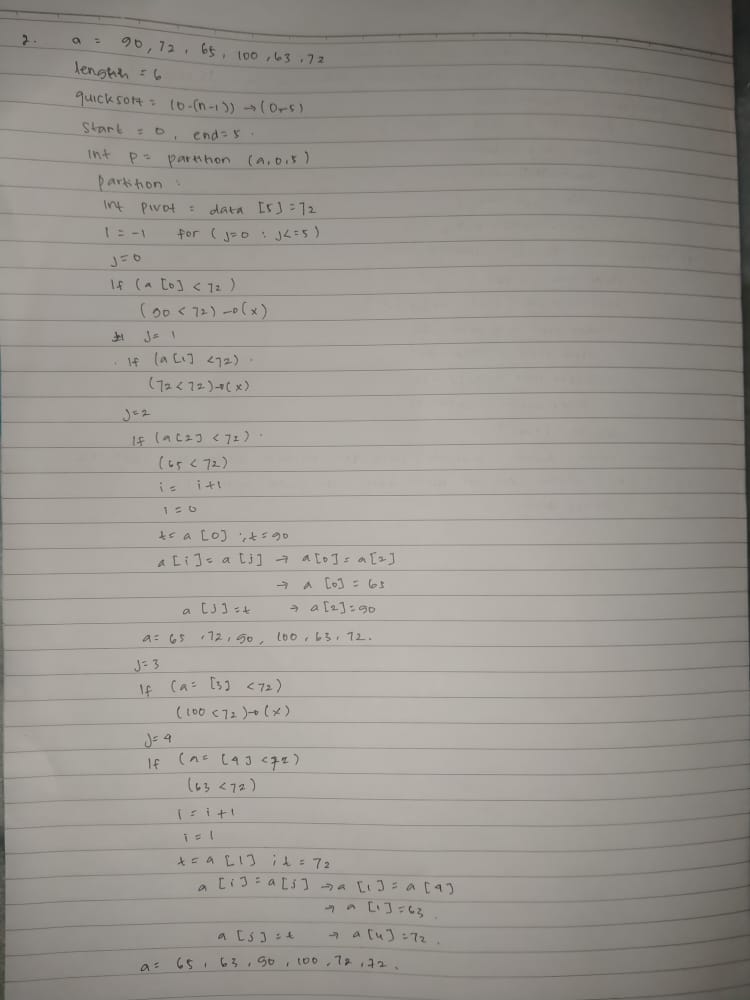 2. a = 90, 72, 65, 100, 63, 72
length = 6
quicksort = (0-(n-1)) → (0-5)
start = 0, end=5.
int p = partition (a,0,5)
partition :
int pivot = data [5] = 72
i = -1 for (j=0 : j<=5)
j=0
if (a [0] < 72)
(90 < 72) → (x)
j= 1
if (a[1] <72).
(72 < 72) → (x)
j=2
if (a[2] < 72).
(65 < 72)
i = i+1
i = 0
t= a [0] ; t = 90
a [i] = a [j] → a[0] = a[2]
→ a [0] = 65
a [j] = t → a[2]=90
a= 65, 72, 90, 100, 63, 72.
j=3
if (a= [3] <72)
(100 < 72) → (x)
j=4
if (a= [4] <72)
(63 < 72)
i = i + 1
i = 1
t = a [1] ; t = 72
a [i] = a[j] → a [1] = a [4]
→ a [1] = 63.
a [j] = t → a[4] = 72.
a= 65, 63, 90, 100, 72, 72.